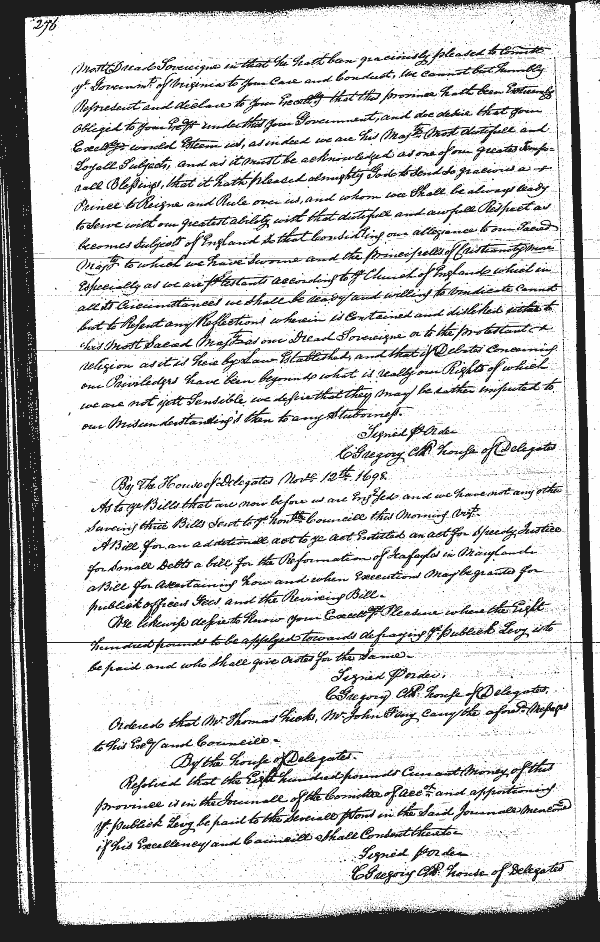 276
Most Dread Sovereigne in that he hath ben graciously pleased to Comitt
ye Governmt of Virginia to your Care and Conduct, We cannot but humbly
Represent and declare to your Excellcy that this province hath been Extreamly
obliged to your Excy under this your Government, and doe desire that your
Excellcy would Esteem us, as indeed we are his Majtys Most dutifull and
Loyall Subjects, and as it must be acknowledged as one of our greatest Tempo-
rall Blessings, that it hath pleased almighty God to Send so gracious a
Prince to Reigne and Rule over us, and whom we Shall be always ready
to Serve with our greatest ability with that dutifull and awfull Respect as
becomes Subjects of England So that Considering our allegiance to our Sacred
Majty to which we have Sworne and the principells of Christianity more
Especially as we are ptestants according to ye Church of England which in
all its Circumstances we shall be ready and willing to vindicate Cannot
but to Resent any Reflections wherein is Contained and disliked either to
his Most Sacred Majty as our Dread Sovereigne or to the protestant
religion as it is here by Law Established, and that if Debates Concerning
our Priviledges have been beyond what is really our Rights of which
we are not yett Sensible we desire that they may be rather imputed to
our Misunderstanding's then to any Stubornesse.
Signed p order
C Gregory Clk. house of Delegates
By The House of Delegates Novr 12th 1698.
As to ye Bills that are now before us are Engrossed and we have not any other
Saveing three Bills Sent to ye honble Councill this Morning vizt
A Bill for an additional act to ye act Entituled an act for Speedy Justice
for Small Debts a bill for the Reformation of in Maryland
a Bill for ascertaining how and when Executions may be granted for
publick officers Fees and the Reviving Bill.
We likewise desire to know your Excellcys Pleasure where the Eight
hundred pounds to be applyed towards defraying ye publick Levy is to
be paid and who shall give notes for the Same.
Signed p order.
C Gregory Clk. house of Delegates.
Ordered that Mr Thomas Hicks, Mr John carry the aforesd Messages
to his Excy and Councill.
By the house of Delegates.
Resolved that the Eight hundred pounds Currant Money of this
province is in the Journall of the Comittee of acctts and apportioning
ye publick Levy be paid to the Severall psons in the Said Journall Menconed
if his Excellency and Councill Shall Consent thereto
Signed p order
C Gregory Clk. house of Delegates